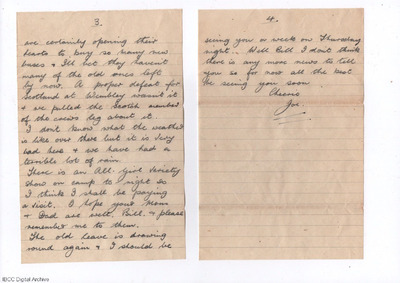 3.
are certainly opening their
hearts to buy so many new
buses & I'll bet they haven't
many of the old ones left
by now. A proper defeat for
Scotland at Wembley wasn't it
& we pulled the Scotch member
of the crews leg about it.
I don't know what the weather
is like over there but it is very
bad here & we have had a
terrible lot of rain.
There is an All Girl Variety
show on camp to night so
I think I shall be paying
a visit. I hope your Mom
& Dad are well, Bill. & please
remember me to them.
The old leave is drawing
round again & I should be
4.
seing you 2 weeks on Thursday
night. Well Bill I don't think
there is any more news to tell
you so for now all the best
be seing you soon.
Cheerio
Joe.
IBCC Digital Archive